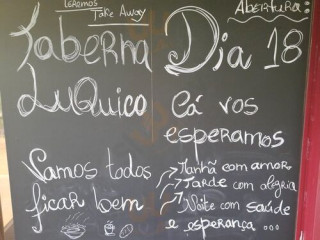 Teremos
Take Away
Taberna
LuQuico
Vamos todos
ficar bem
Abertura:
Dia 18
Cá vos
esperamos
Manhã com amor
Tarde com alegria
Noite com saúde
e esperança ...